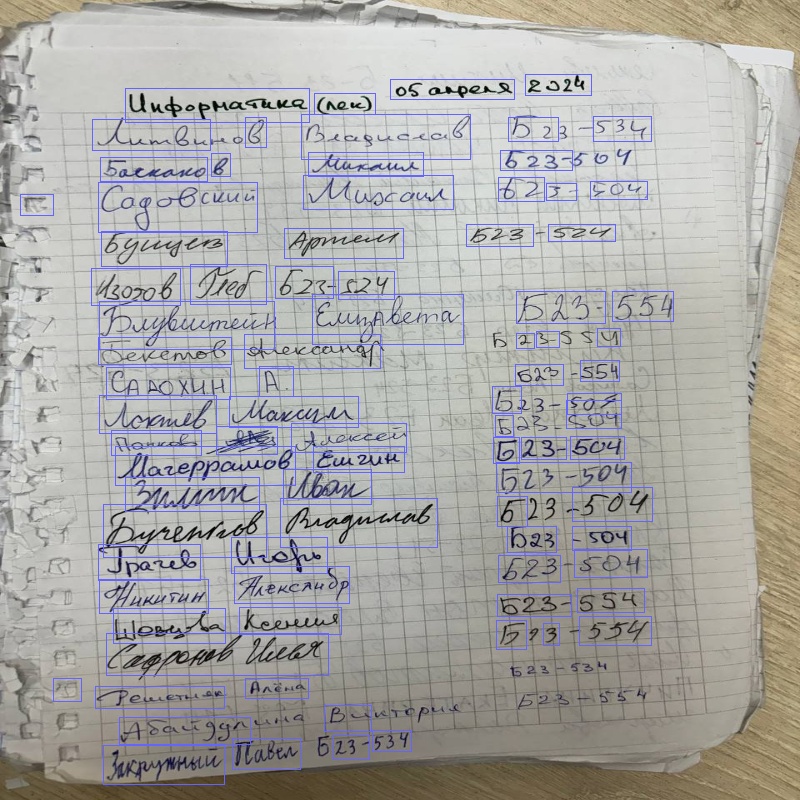 Информатика (лек) 05 апреля 2024
Литвинов Владислав Б23-534
Баскаков Михаил Б23-504
Садовский Михаил Б23-504
Бунцев Артем Б23-524
Изотов Глеб Б23-524
Блувштейн Елизавета Б23-554
Бекетов Александр Б23-554
САДОХИН А. Б23-554
Локтев Максим Б23-504
Попков Алексей Б23-504
Магеррамов Ельчин Б23-504
Зимин Иван Б23-504
Бученков Владислав Б23-504
Грачев Игорь Б23-504
Никитин Александр Б23-504
Шовцова Ксения Б23-554
Сафронов Илья Б23-554
Решетняк Алёна Б23-534
Абайдулина Виктория Б23-554
Закружный Павел Б23-534